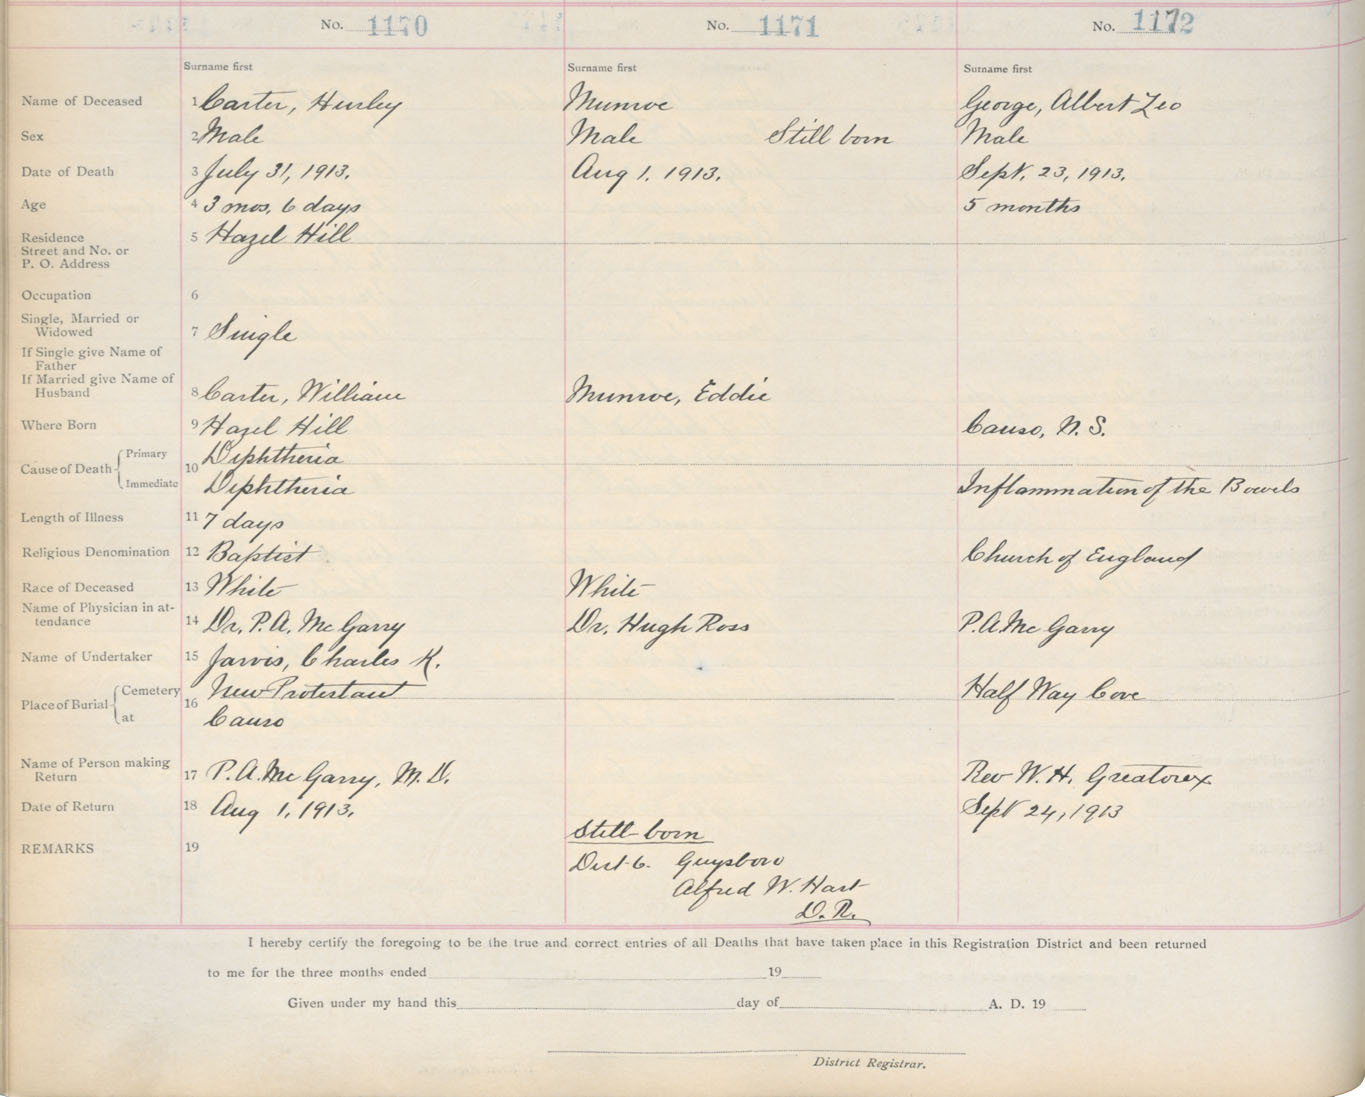 No. 1170 No. 1171 No. 1172
Surname first Surname first Surname first
Name of Deceased 1 Carter, Hurley Munroe George, Albert Leo
Sex 2 Male Male Still born Male
Date of Death 3 July 31, 1913. Aug 1. 1913. Sept. 23, 1913.
Age 4 3 mos. 6 days 5 months
Residence
Street and No. or
P. O. Address 5 Hazel Hill
Occupation 6
Single, Married or
Widowed 7 Single
If Single give Name of
Father
If Married give Name of
Husband 8 Carter, William Munroe, Eddie
Where Born 9 Hazel Hill Canso, N.S.
Cause of Death Primary 10 Diphtheria
Immediate Diphtheria Inflammation of the Bowels
Length of Illness 11 7 days
Religious Denomination 12 Baptist Church of England
Race of Deceased 13 White White
Name of Physician in at-
tendance 14 Dr. P.A. McGarry Dr. Hugh Ross P.A. McGarry
Name of Undertaker 15 Jarvis, Charles K.
Place of Burial Cemetery 16 New Protestant Half Way Cove
at Canso
Name of Person making
Return 17 P.A. McGarry, M.D. Rev W.H. Greatorex
Date of Return 18 Aug 1, 1913. Sept 24, 1913
REMARKS 19 Still-born
Dist 6. Guysboro
Alfred W. Hart
D.R.
I hereby certify the foregoing to be the true and correct entries of all Deaths that have taken place in this Registration District and been returned
to me for the three months ended 19
Given under my hand this day of A. D. 19
District Registrar.